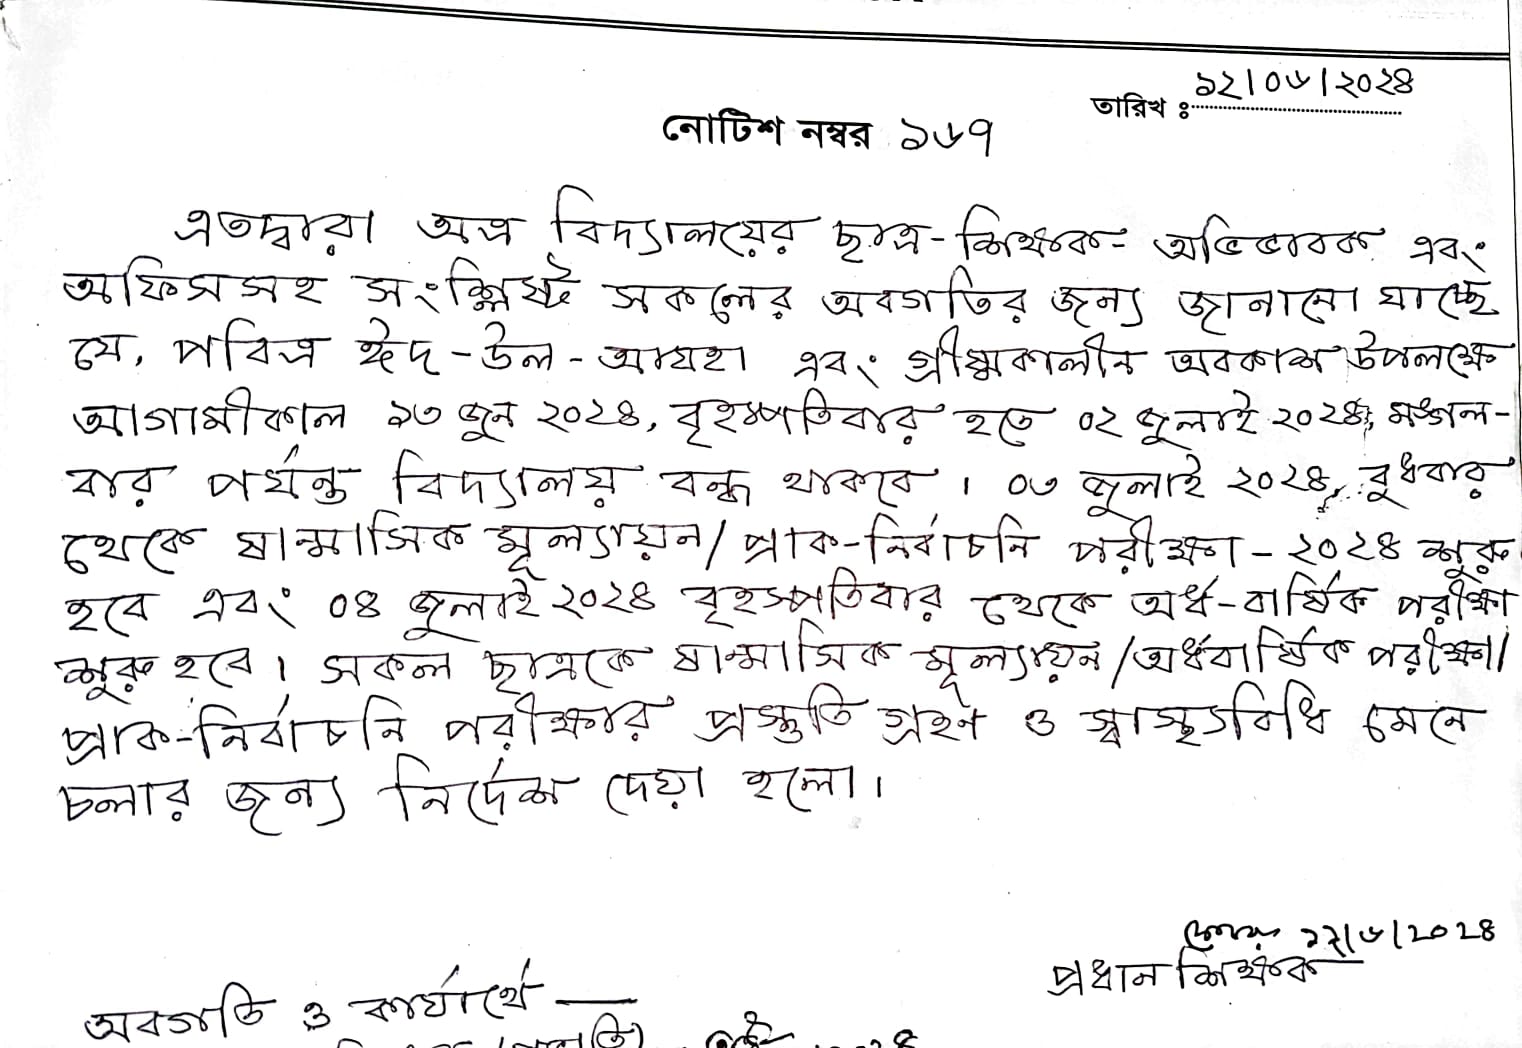 তারিখ ঃ ১২/০৬/২০২৪
নোটিশ নম্বর ১৬৭
এতদ্বারা অত্র বিদ্যালয়ের ছাত্র-শিক্ষক- অভিভাবক এবং
অফিসসহ সংশ্লিষ্ট সকলের অবগতির জন্য জানানো যাচ্ছে
যে, পবিত্র ঈদ-উল-আযহা এবং গ্রীষ্মকালীন অবকাশ উপলক্ষে
আগামীকাল ১৩ জুন ২০২৪, বৃহস্পতিবার হতে ০২ জুলাই ২০২৪, মঙ্গল-
বার পর্যন্ত বিদ্যালয় বন্ধ থাকবে। ০৩ জুলাই ২০২৪, বুধবার
থেকে ষান্মাসিক মূল্যায়ন/প্রাক-নির্বাচনি পরীক্ষা-২০২৪ শুরু
হবে এবং ০৪ জুলাই ২০২৪ বৃহস্পতিবার থেকে অর্ধ-বার্ষিক পরীক্ষা
শুরু হবে। সকল ছাত্রকে ষান্মাসিক মূল্যায়ন/অর্ধবার্ষিক পরীক্ষা/
প্রাক-নির্বাচনি পরীক্ষার প্রস্তুতি গ্রহণ ও স্বাস্থ্যবিধি মেনে
চলার জন্য নির্দেশ দেয়া হলো।
১২/৬/২০২৪
প্রধান শিক্ষক
অবগতি ও কার্যার্থে —